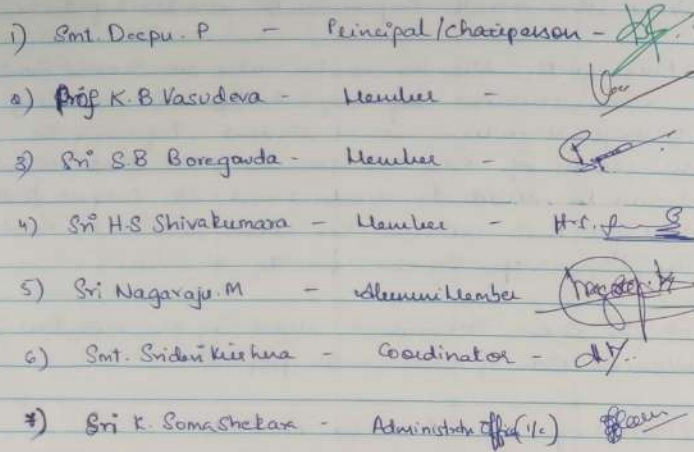 1) Smt. Deepu. P - Principal/Chairperson -
2) Prof K.B Vasudeva - Member -
3) Sri S.B Boregowda - Member -
4) Sri H.S Shivakumara - Member - H.S.
5) Sri Nagaraju. M - Alumni Member
6) Smt. Sridevi Krishna - Coordinator -
7) Sri K. Somashekara - Administrative Office (I/c)